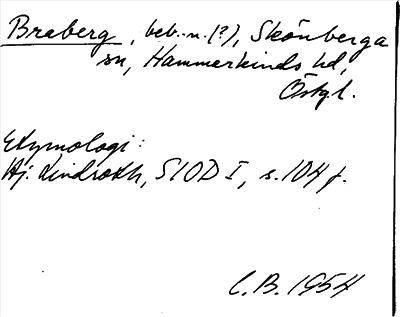 Braberg, beb.-n. (?), Skönberga
sn, Hammerkinds hd,
Östgl.
Etymologi:
Hj. Lindroth, SIOD I, s. 104 f.
C.B. 1954